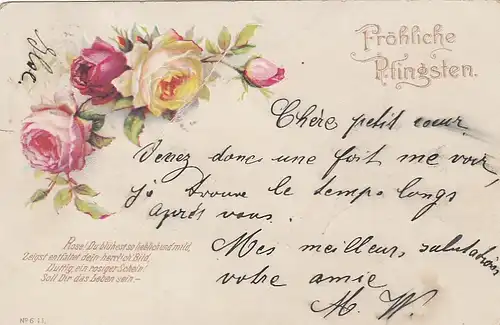 Fröhliche
Pfingsten.
Chère petit cœur.
Venez donc une foit me voir,
je trouve le temps longs
après vous.
Mes meilleurs salutations
votre amie
M. W.
Rose! Du blühest so lieblich und mild,
Zeigst entfaltet dein herrlich Bild,
Duftig, ein rosiger Schein!
Soll Dir das Leben sein.
No 611.